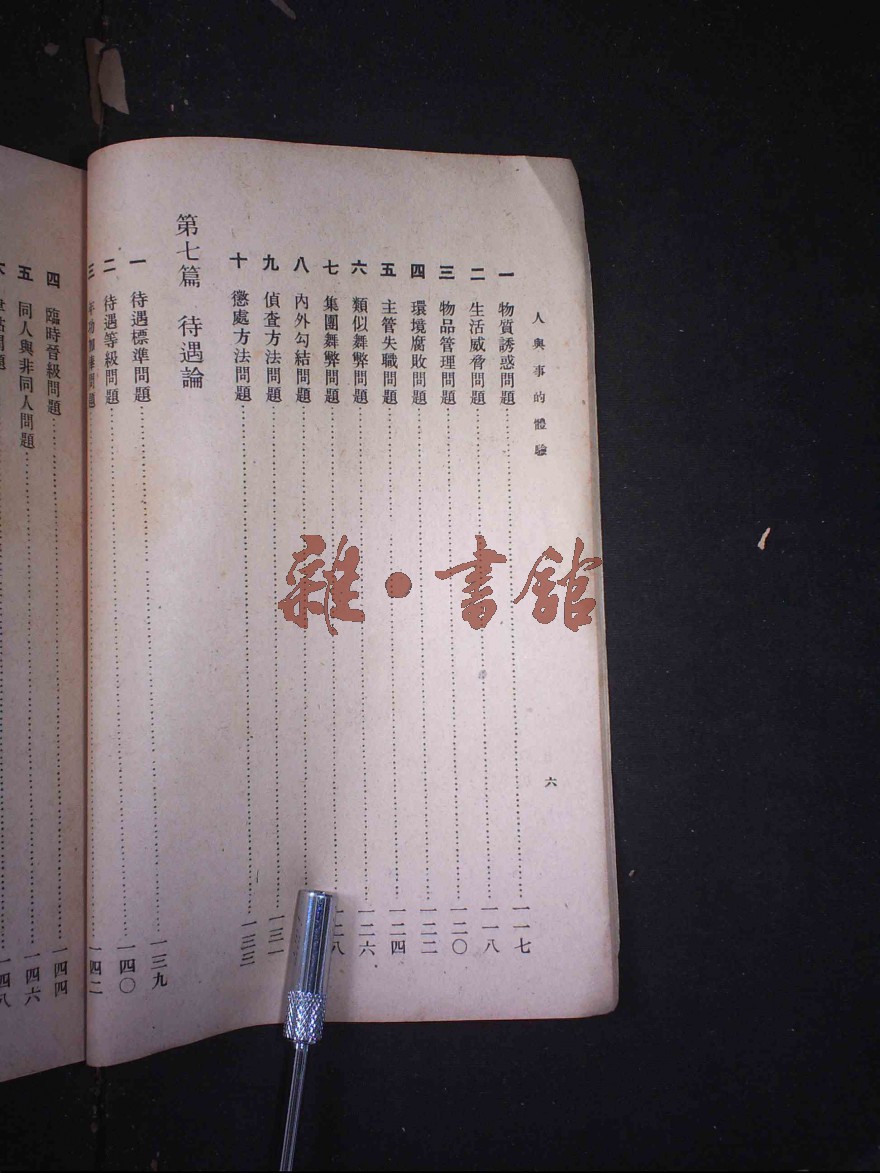 人與事的體驗
六
一 物質誘惑問題……一一七
二 生活威脅問題……一一八
三 物品管理問題……一二〇
四 環境腐敗問題……一二二
五 主管失職問題……一二四
六 類似舞弊問題……一二六
七 集團舞弊問題……一二八
八 內外勾結問題……
九 偵查方法問題……一三一
十 懲處方法問題……一三三
第七篇 待遇論
一 待遇標準問題……一三九
二 待遇等級問題……一四〇
三 年功加俸問題……一四二
四 臨時晉級問題……一四四
五 同人與非同人問題……一四六
六 問題……一四八
雜·書館